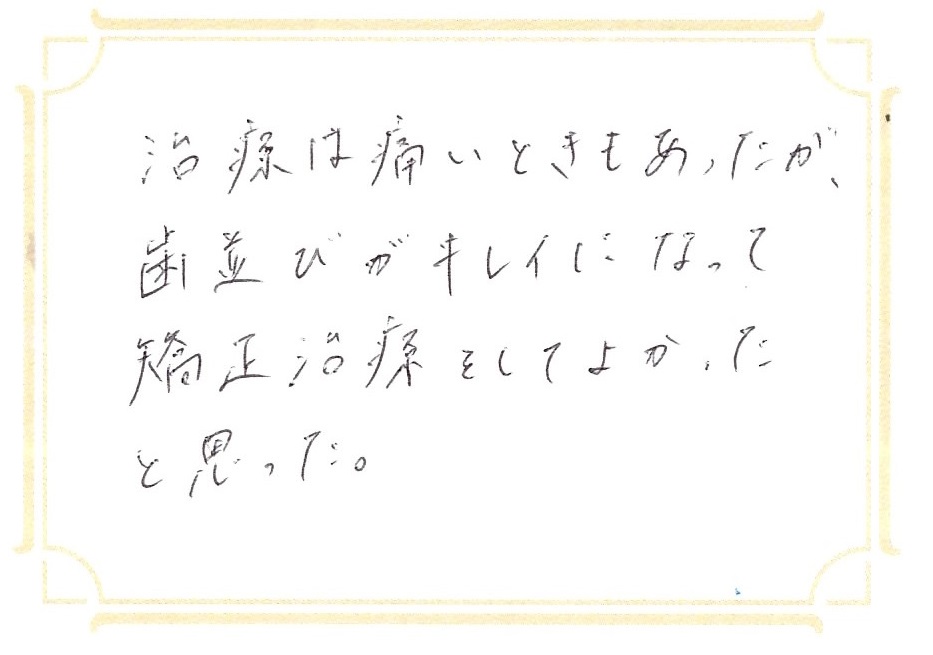 治療は痛いときもあったが、
歯並びがキレイになって
矯正治療をしてよかった
と思った。